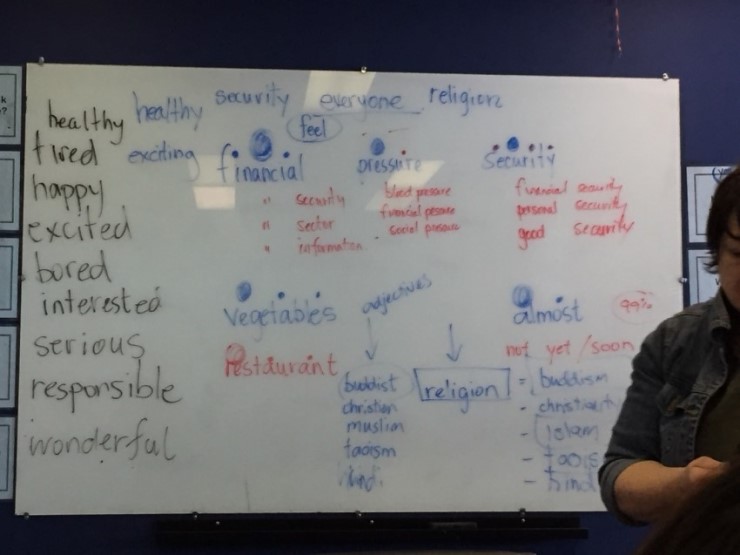 healthy security everyone religion
feel
healthy
tired
happy
excited
bored
interested
serious
responsible
wonderful
exciting
financial
" security
" sector
" information
pressure
blood pressure
social
security
financial security
personal security
good security
vegetables
restaurant
almost
99%
not yet /soon
adjectives
buddist
christian
muslim
taoism
religion
= buddism
- christianity
- Islam
- taois
- hind